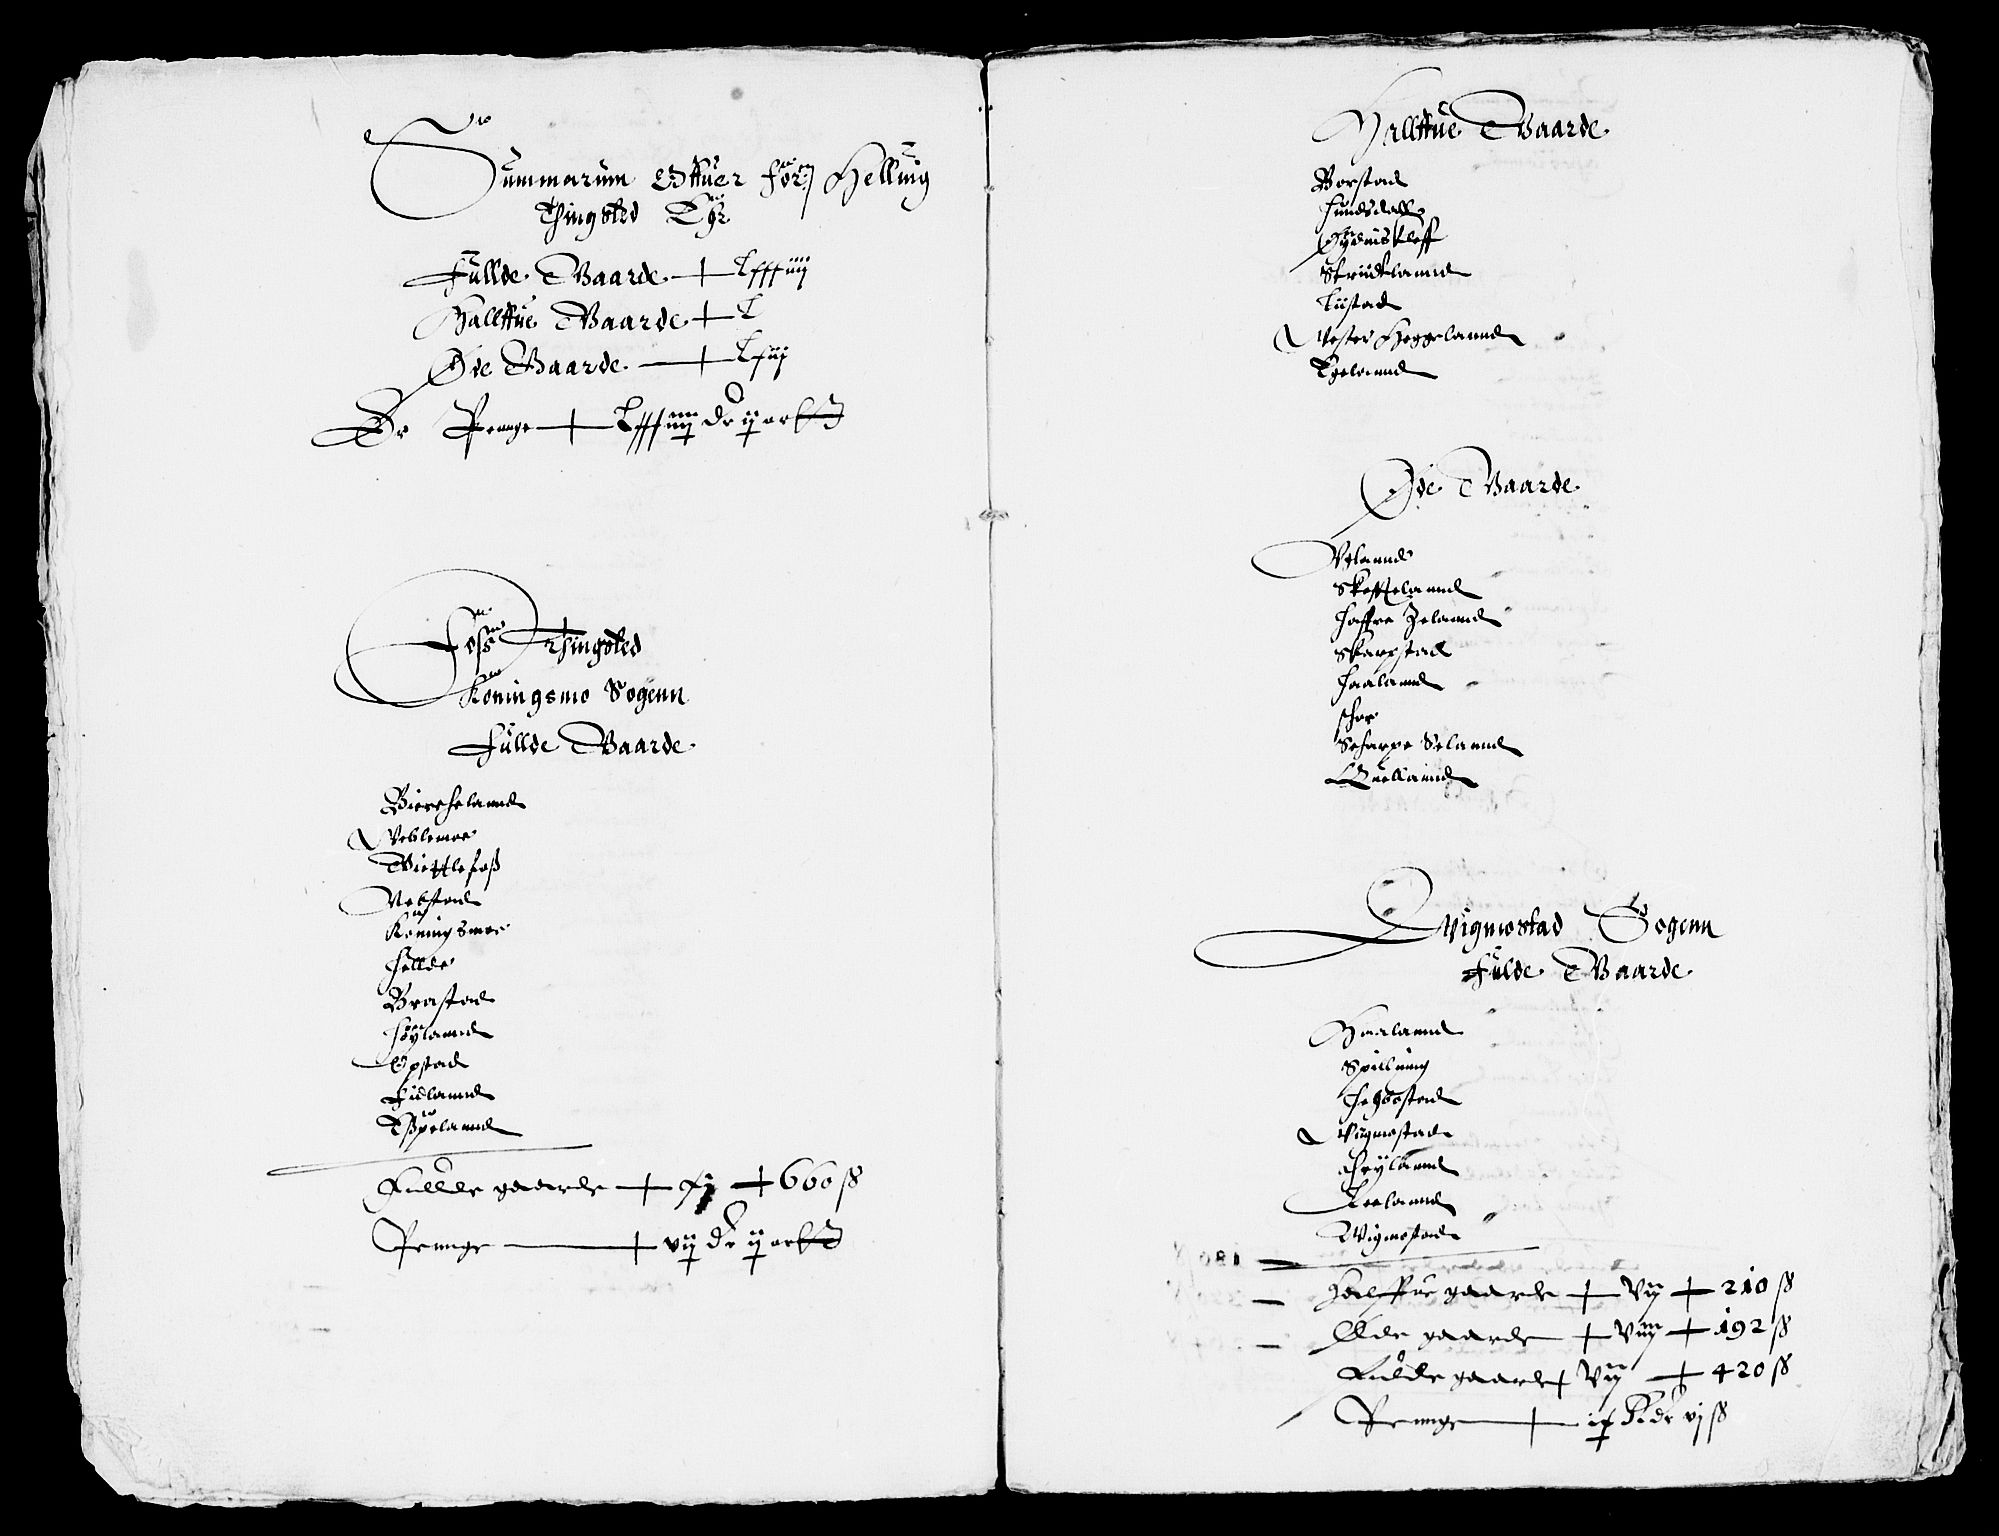 Summarum Offuer for: Helluig
Thingsted Er
Fullde Gaarde + Lxxxiiij
Hallffue Gaarde + L
Øde Gaarde + Lxiij
Er Penge + Lxxx dr ij ort
Foss Thingsted
Koningsmo Sogenn
Fullde Gaarde
Bierchelannd
Veblemoe
Gietlefoss
Vebstad
Koningsmoe
Hellde
Brastad
Høylannd
Opstad
Fislannd
Espelannd
Fullde gaarde + xj + 660 ß
Penge + vij dr ij ort
Hallffue Gaarde
Borstad
Hundsdall
Øydnis kleff
Skrudtlannd
Liistad
Vester Heggelannd
Egelannd
Øde Gaarde
Velannd
Skeffelannd
Haffre Jelannd
Skarpstad
Haalannd
Scharpe Selannd
Quellannd
Vigmostad Sogenn
Fulde Gaarde
Haalannd
Spilling
Hegbostad
Vügmostad
Høylannd
Reelannd
Vigmostad
Halffue gaarde + Vij + 210 ß
Øde gaarde + Viij + 192 ß
Fulde gaarde + Vij + 420 ß
Penge + ix Rdr vj ß